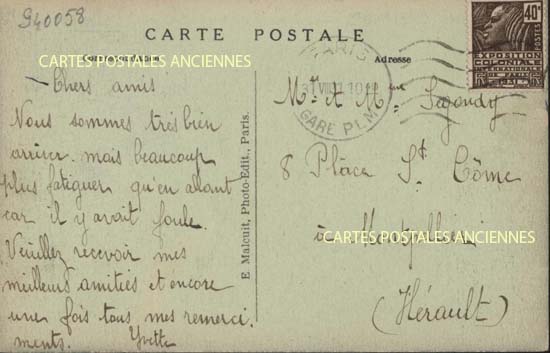 940058
CARTE POSTALE
Correspondance
Adresse
CARTES POSTALES ANCIENNES
40c
EXPOSITION
COLONIALE
INTERNATIONALE
PARIS
GARE P.L.M
Chers amis
Nous sommes très bien
arriver mais beaucoup
plus fatiguer qu'en allant
car il y avait foule.
Veuillez recevoir mes
meilleurs amitiés et encore
une fois tous mes remerci.
ments. Yvette
E. Malcuit, Photo-Édit., Paris.
Mr et Mme Segondy
8 Place St Côme
à Montpellier
CARTES POSTALES ANCIENNES
(Hérault)